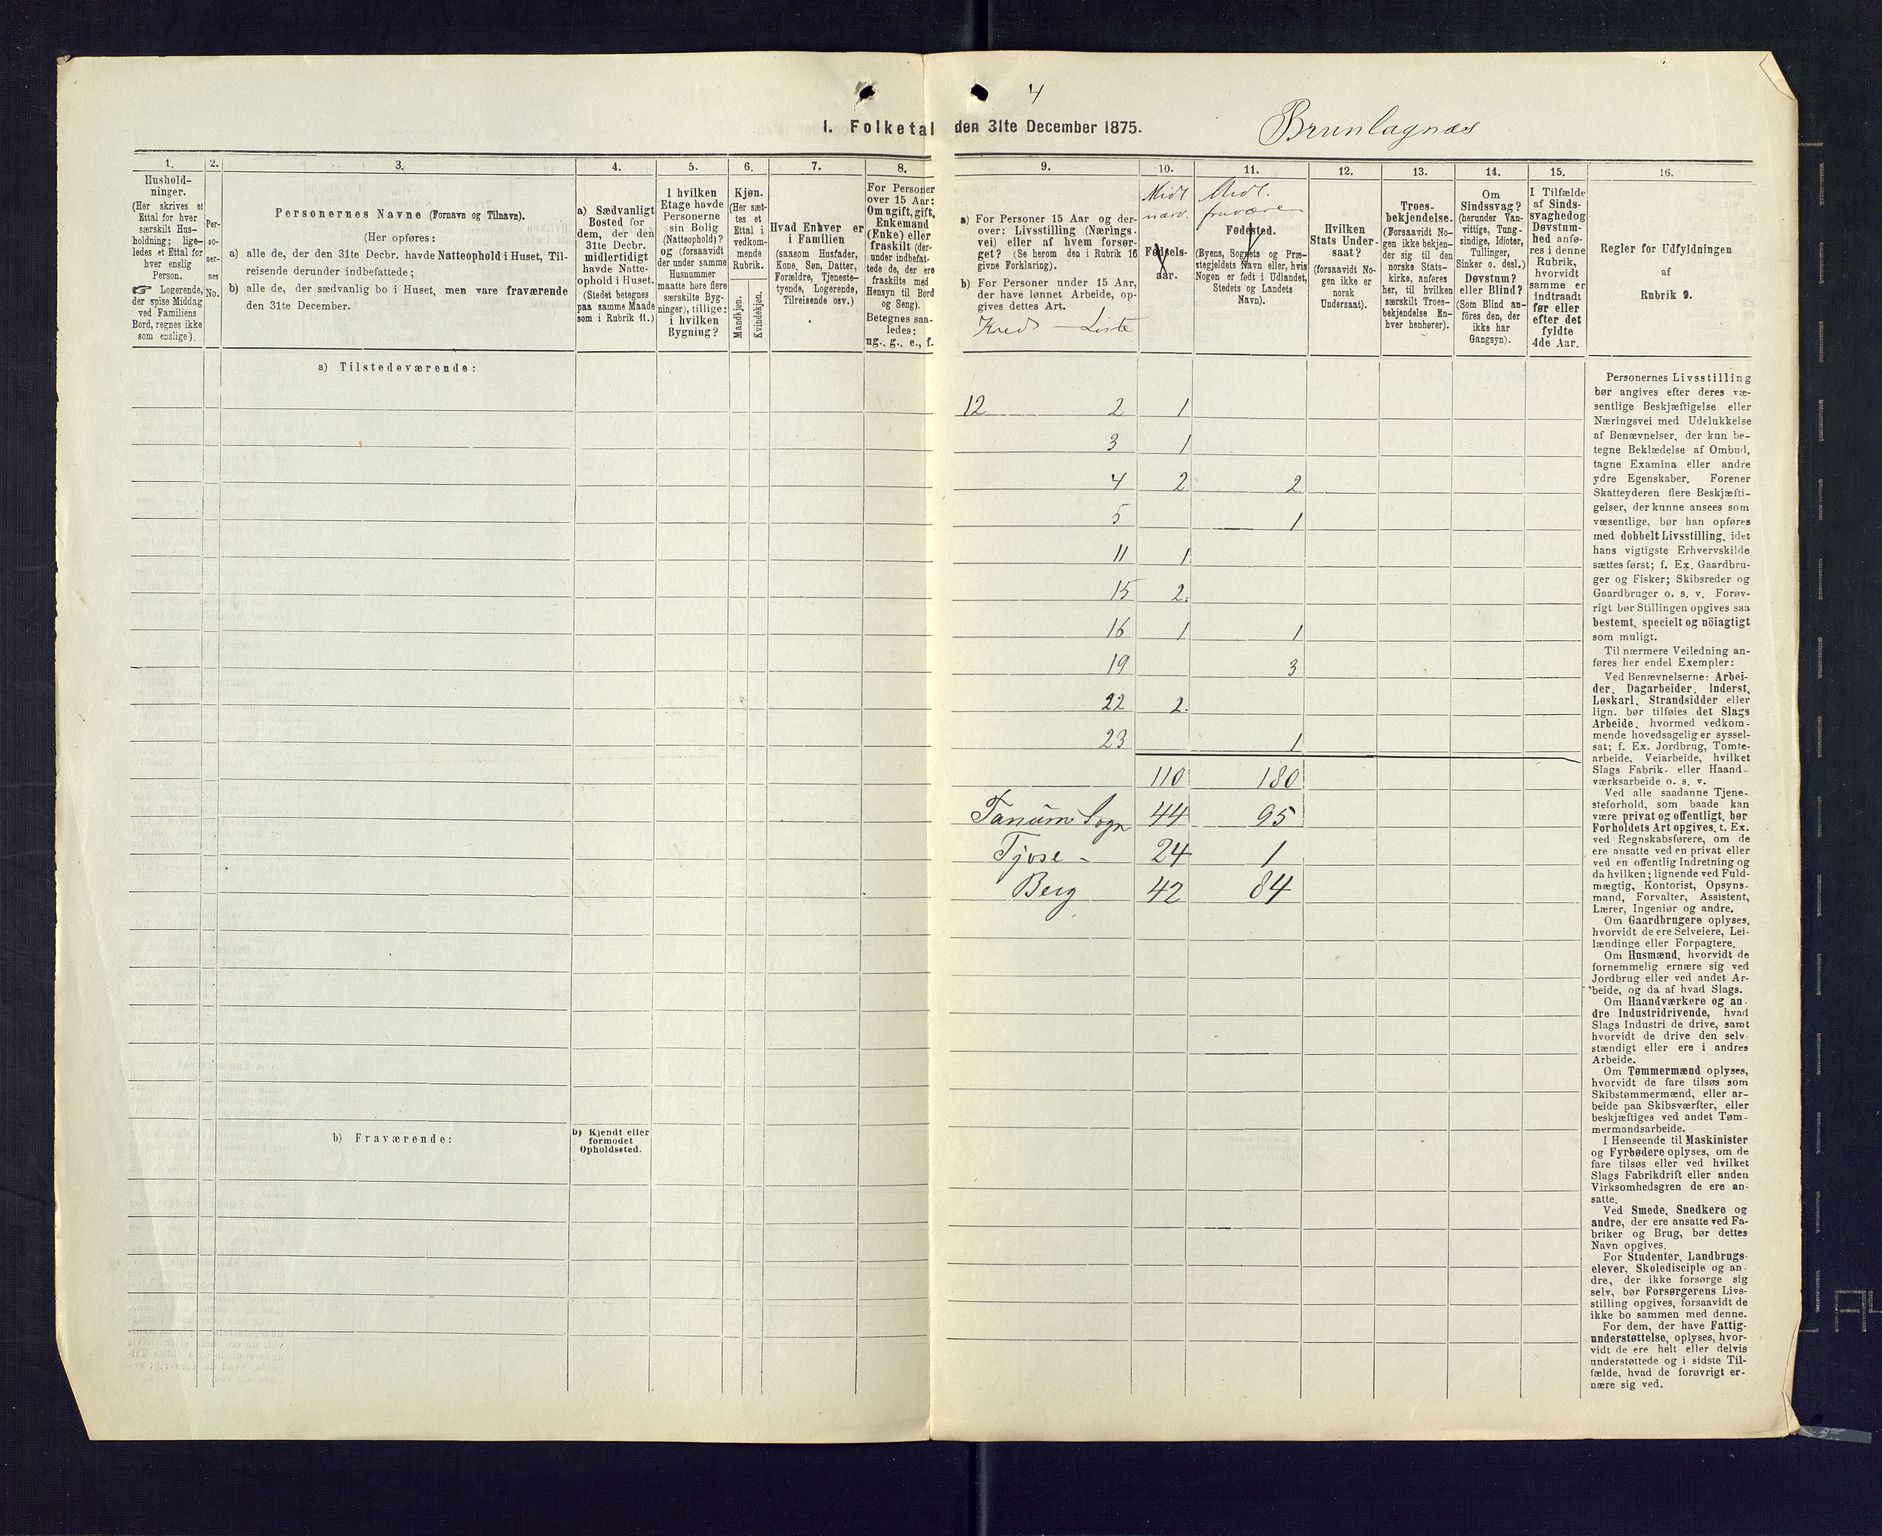 4
1. Folketal den 31te December 1875.
Brunlagnæs
1.
2.
3.
4.
5.
6.
7.
8.
9.
10.
11.
12.
13.
14.
15.
16.
Hushold-
ninger.
(Her skrives et
Ettal for hver
særskilt Hus-
holdning; lige-
ledes et Ettal for
hver enslig
Person.
☞ Logerende,
der spise Middag
ved Familiens
Bord, regnes ikke
som enslige).
Per-
so-
ner-
nes
No.
Personernes Navne (Fornavn og Tilnavn).
(Her opføres:
a) alle de, der den 31te Decbr. havde Natteophold i Huset, Til-
reisende derunder indbefattede;
b) alle de, der sædvanlig bo i Huset, men vare fraværende
den 31te December.
a) Sædvanligt
Bosted for
dem, der den
31te Decbr.
midlertidigt
havde Natte-
ophold i Huset.
(Stedet betegnes
paa samme Maade
som i Rubrik 11.)
I hvilken
Etage havde
Personerne
sin Bolig
(Natteophold)?
og (forsaavidt
der under samme
Husnummer
maatte høre flere
særskilte Byg-
ninger), tillige:
i hvilken
Bygning?
Kjøn.
(Her sæt-
tes et
Ettal i
vedkom-
mende
Rubrik.
Mandkjøn.
Kvindekjøn.
Hvad Enhver er
i Familien
(saasom Husfader,
Kone, Søn, Datter,
Forældre, Tjeneste-
tyende, Logerende,
Tilreisende osv.)
For Personer
over 15 Aar:
Om ugift, gift,
Enkemand
(Enke) eller
fraskilt (der-
under indbefat-
tede de, der ere
fraskilte med
Hensyn til Bord
og Seng).
Betegnes saa-
ledes:
ug., g., e., f.
a) For Personer 15 Aar og der-
over: Livsstilling (Nærings-
vei) eller af hvem forsør-
get? (Se herom den i Rubrik 16
givne Forklaring).
b) For Personer under 15 Aar,
der have lønnet Arbeide, op-
gives dettes Art.
Kreds – Liste
Midl
nærv.
Fødsels-
aar.
Midl.
fravære
Fødested.
(Byens, Sognets og Præ-
stegjeldets Navn eller, hvis
Nogen er født i Udlandet,
Stedets og Landets
Navn).
Hvilken
Stats Under-
saat?
(forsaavidt No-
gen ikke er
norsk
Undersaat).
Troes-
bekjendelse.
(Forsaavidt No-
gen ikke bekjen-
der sig til den
norske Stats-
kirke, anføres
her, til hvilken
særskilt Troes-
bekjendelse En-
hver henhører).
Om
Sindssvag?
(herunder Van-
vittige, Tung-
sindige, Idioter,
Tullinger,
Sinker o. desl.)
Døvstum?
eller Blind?
(Som Blind an-
føres den, der
ikke har
Gangsyn).
I Tilfælde
af Sinds-
svaghed og
Døvstum-
hed anfø-
res i denne
Rubrik,
hvorvidt
samme er
indtraadt
før eller
efter det
fyldte
4de Aar.
Regler for Udfyldningen
af
Rubrik 9.
a) Tilstedeværende:
12 2 1
3 1
4 2 2
5 1
11 1
15 2.
16 1 1
19 3
22 2.
23 1
110 180
Tanum Sogn 44 95
Tjose – 24 1
Berg 42 84
b) Fraværende:
b) Kjendt eller
formodet
Opholdssted.
Personernes Livsstilling
bør angives efter deres væ-
sentlige Beskjæftigelse eller
Næringsvei med Udelukkelse
af Benævnelser, der kun be-
tegne Beklædelse af Ombud,
tagne Examina eller andre
ydre Egenskaber. Forener
Skatteyderen flere Beskjæfti-
gelser, der kunne ansees som
væsentlige, bør han opføres
med dobbelt Livsstilling, idet
hans vigtigste Erhvervskilde
sættes først; f. Ex. Gaardbru-
ger og Fisker; Skibsreder og
Gaardbruger o. s. v. Forøv-
rigt bør Stillingen opgives saa
bestemt, specielt og nöiagtigt
som muligt.
Til nærmere Veiledning an-
føres her endel Exempler:
Ved Benævnelserne: Arbei-
der, Dagarbeider, Inderst,
Løskarl, Strandsidder eller
lign. bør tilføies det Slags
Arbeide, hvormed vedkom-
mende hovedsagelig er syssel-
sat; f. Ex. Jordbrug, Tomte-
arbeide, Veiarbeide, hvilket
Slags Fabrik- eller Haand-
værksarbeide o. s. v.
Ved alle saadanne Tjene-
steforhold, som baade kan
være privat og offentligt, bør
Forholdets Art opgives, t. Ex.
ved Regnskabsførere, om de
ere ansatte ved en privat eller
ved en offentlig Indretning og
da hvilken; lignende ved Fuld-
mægtig, Kontorist, Opsyns-
mand, Forvalter, Assistent,
Lærer, Ingeniør og andre.
Om Gaardbrugere oplyses,
hvorvidt de ere Selveiere, Lei-
lændinge eller Forpagtere.
Om Husmænd, hvorvidt de
fornemmelig ernære sig ved
Jordbrug eller ved andet Ar-
beide, og da af hvad Slags.
Om Haandværkere og an-
dre Industridrivende, hvad
Slags Industri de drive, samt
hvorvidt de drive den selv-
stændigt eller ere i andres
Arbeide.
Om Tømmermænd oplyses,
hvorvidt de fare tilsøs som
Skibstømmermænd, eller ar-
beide paa Skibsværfter, eller
beskjæftiges ved andet Tøm-
mermandsarbeide.
I Henseende til Maskinister
og Fyrbødere oplyses, om de
fare tilsøs eller ved hvilket
Slags Fabrikdrift eller anden
Virksomhedsgren de ere an-
satte.
Ved Smede, Snedkere og
andre, der ere ansatte ved Fa-
briker og Brug, bør dettes
Navn opgives.
For Studenter, Landbrugs-
elever, Skoledisciple og an-
dre, der ikke forsørge sig
selv, bør Forsørgerens Livs-
stilling opgives, forsaavidt de
ikke bo sammen med denne.
For dem, der have Fattig-
understøttelse, oplyses, hvor-
vidt de ere helt eller delvis
understøttede og i sidste Til-
fælde, hvad de forøvrigt er-
nære sig ved.